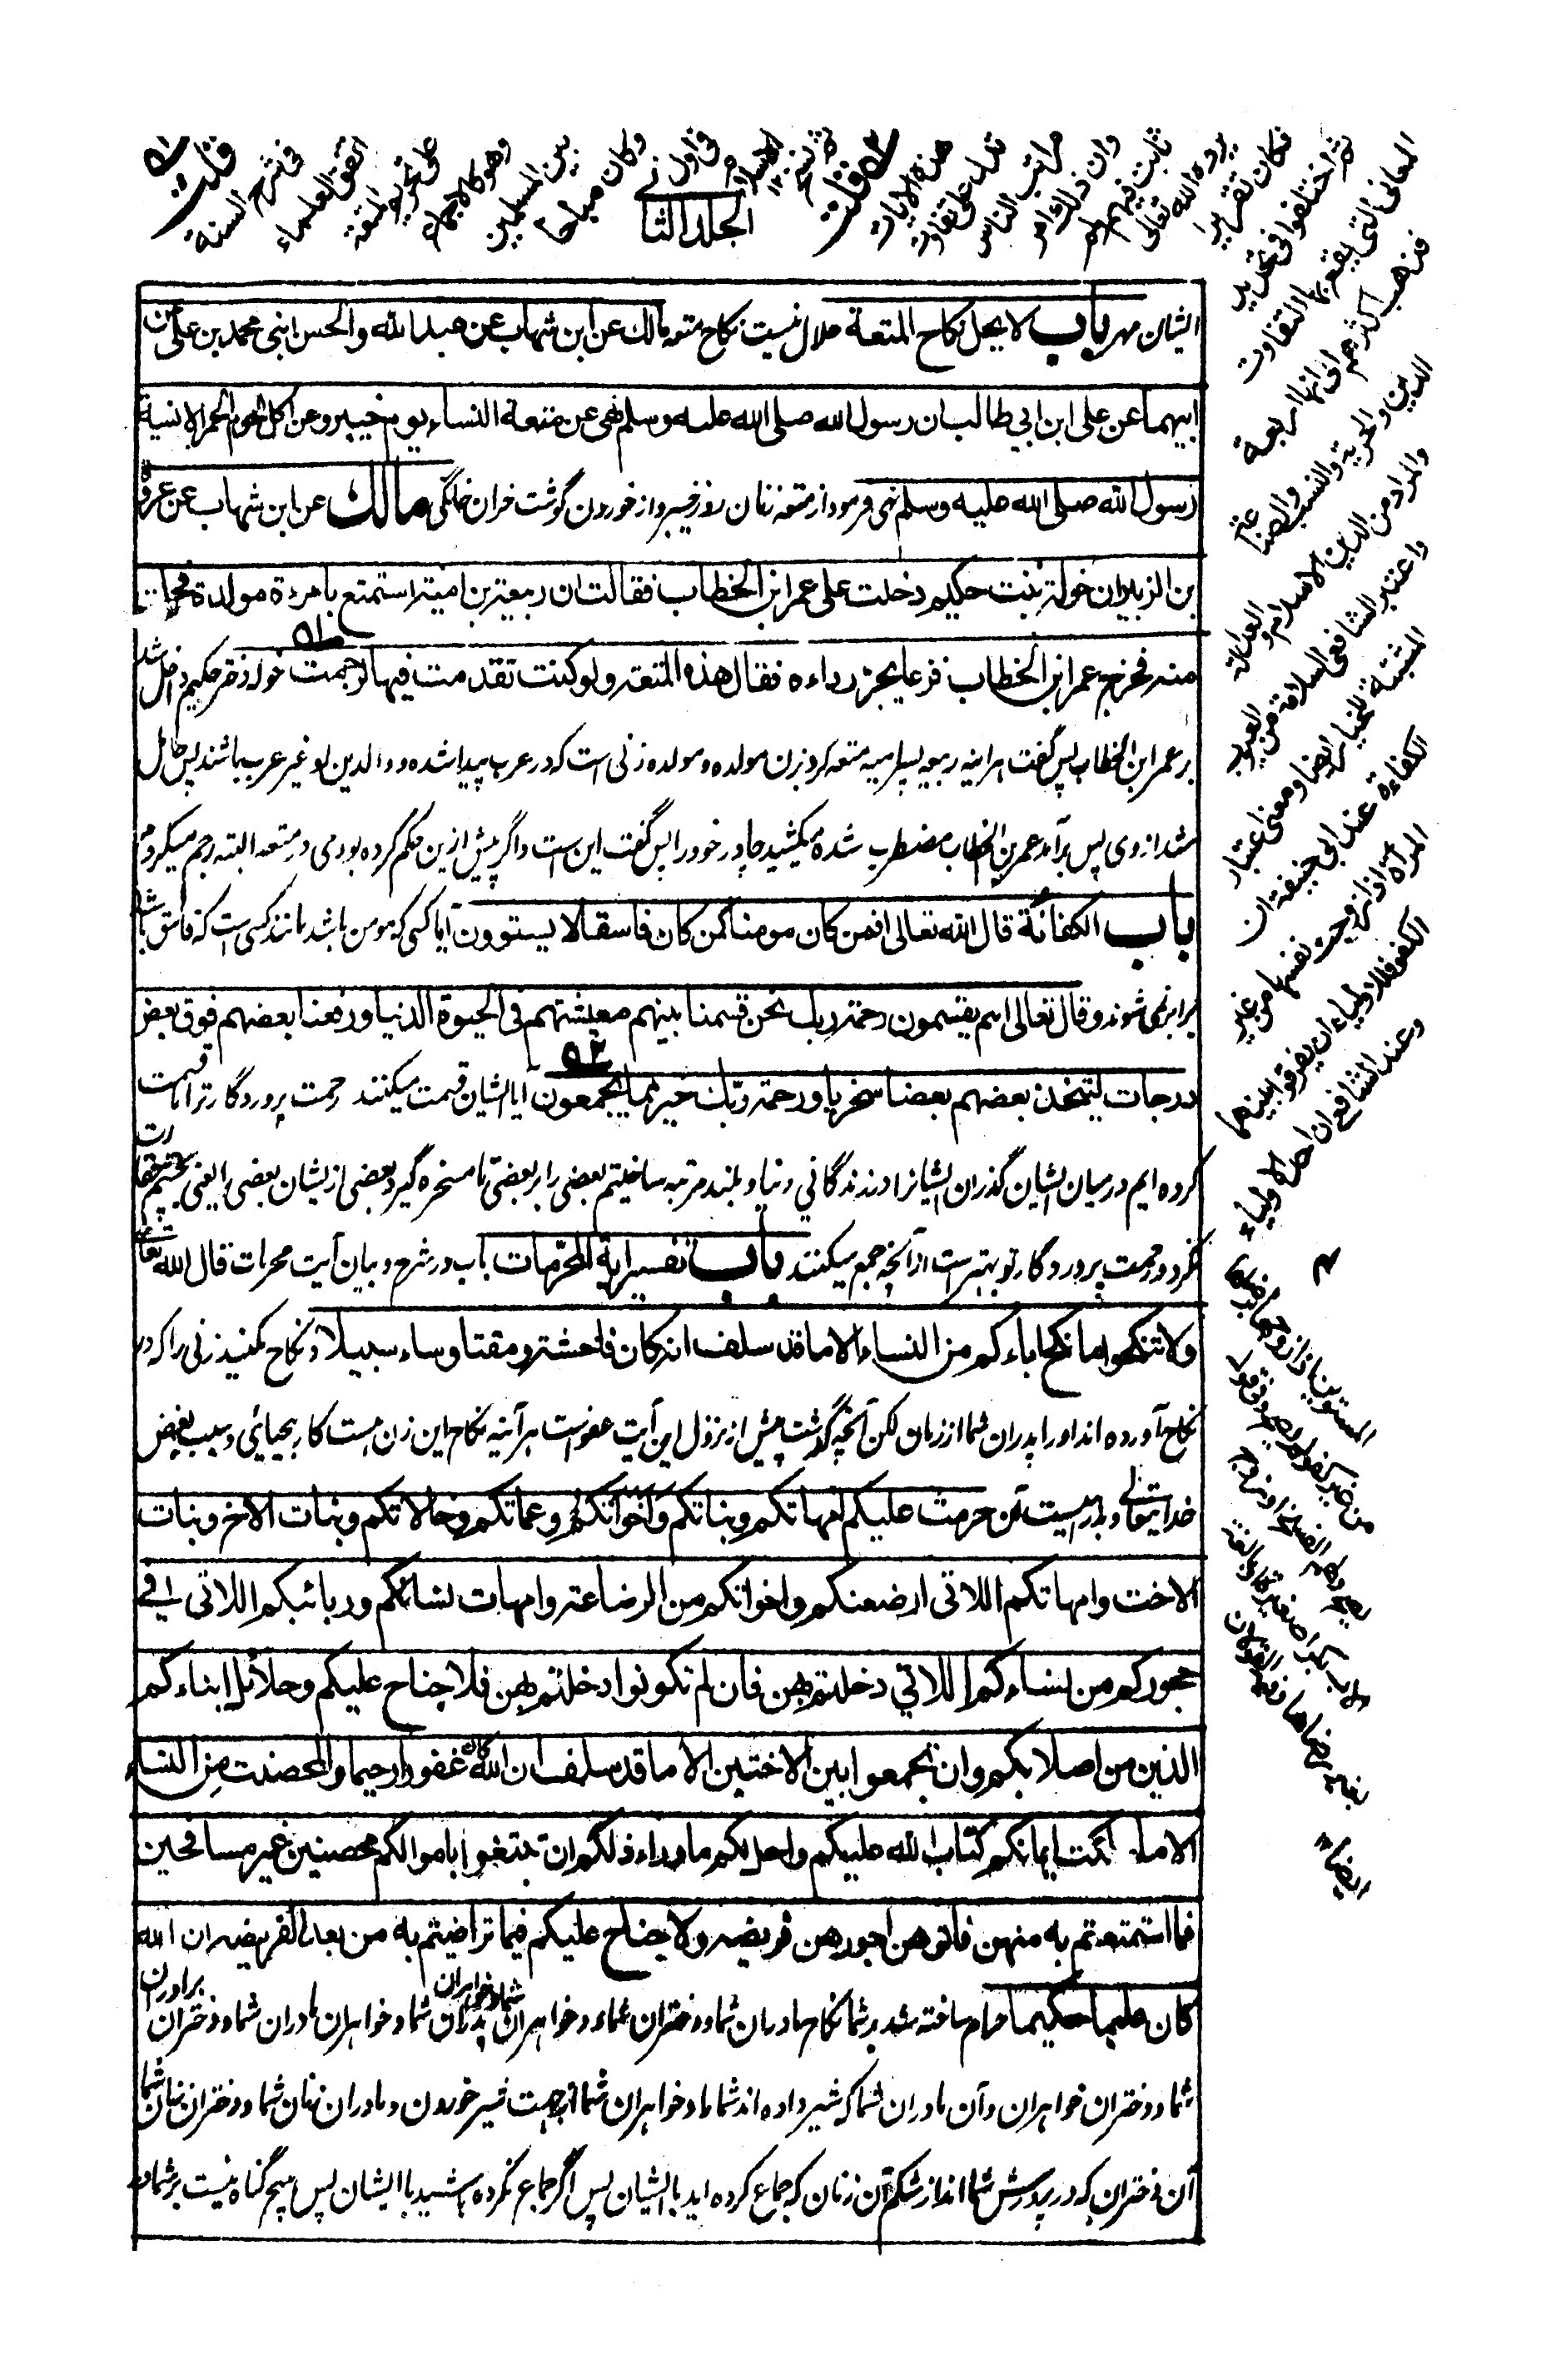 الجلد الثانی
ایشان مهر باب لا یحل نکاح المتعة حلال نیست نکاح متعه مالك عن ابن شهاب عن عبد الله والحسن ابنی محمد بن علی عن
ابیهما عن علی ابن ابی طالب ان رسول الله صلی الله علیه وسلم نهی عن متعة النساء یوم خیبر وعن اکل لحوم الحمر الانسیة
رسول الله صلی الله علیه وسلم نهی فرمود از متعه زنان روز خیبر و از خوردن گوشت خران خانگی مالك عن ابن شهاب عن عروة
بن الزبیر ان خولة بنت حکیم دخلت علی عمر ابن الخطاب فقالت ان ربیعة بن امیة استمتع بامرءة مولدة فحملت
منه فخرج عمر ابن الخطاب فزعا یجر رداءه فقال هذه المتعة ولو کنت تقدمت فیها لرجمت خوله دختر حکیم داخل شد
بر عمر ابن الخطاب پس گفت هرآینه ربیعه پسر امیه متعه کرد بزن مولده و مولده زنی است که در عرب پیدا شده و والدین او غیر عرب باشند پس حامل
شد از وی پس برآمد عمر بن الخطاب مضطرب شده میکشید چادر خود را پس گفت این است و اگر پیش ازین حکم کرده بودمی در متعه البته رجم میکردم
باب الکفائة قال الله تعالی افمن کان مومنا کمن کان فاسقا لا یستوون آیا کسی که مومن باشد مانند کسی است که فاسق باشد
برابر نمی شوند و قال تعالی اهم یقسمون رحمة ربك نحن قسمنا بینهم معیشتهم فی الحیوة الدنیا ورفعنا بعضهم فوق بعض
درجات لیتخذ بعضهم بعضا سخریا ورحمة ربك خیر مما یجمعون آیا ایشان قسمت میکنند رحمت پروردگار ترا ما قسمت
کرده ایم درمیان ایشان گذران ایشانرا در زندگانی دنیا و بلند مرتبه ساختیم بعضی را بر بعضی تا مسخره گیرد بعضی از ایشان بعضی را یعنی بچشم حقارت
نگرد و رحمت پروردگار تو بهتر است از آنچه جمع میکنند باب تفسیر آیة المحرمات باب در شرح و بیان آیت محرمات قال الله تعالی
ولا تنکحوا ما نکح اباءکم من النساء الا ما قد سلف انه کان فاحشة ومقتا وساء سبیلا و نکاح مکنید زنی را که در
نکاح آورده اند او را پدران شما از زنان لکن آنچه گذشت پیش از نزول این آیت عفو است هرآینه نکاح این زن هست کار بیحیائی و سبب بغض
خدایتعالی و بد راهیست آن حرمت علیکم امهاتکم وبناتکم واخواتکم وعماتکم وخالاتکم وبنات الاخ وبنات
الاخت وامهاتکم اللاتی ارضعنکم واخواتکم من الرضاعة وامهات نسائکم وربائبکم اللاتی فی
حجورکم من نساءکم اللاتی دخلتم بهن فان لم تکونوا دخلتم بهن فلا جناح علیکم وحلائل ابناءکم
الذین من اصلابکم وان تجمعوا بین الاختین الا ما قد سلف ان الله کان غفورا رحیما والمحصنت من النساء
الا ما ملکت ایمانکم کتاب الله علیکم واحل لکم ماوراء ذلکم ان تبتغوا باموالکم محصنین غیر مسافحین
فما استمتعتم به منهن فاتوهن اجورهن فریضه ولا جناح علیکم فیما تراضیتم به من بعد الفریضه ان الله
کان علیما حکیما حرام ساخته شد بر شما نکاح مادران شما و دختران شما و خواهران شما و خواهران پدران شما و خواهران مادران شما و دختران برادران
شما و دختران خواهران و آن مادران شما که شیر داده اند شما را و خواهران شما از جهت شیر خوردن و مادران زنان شما و دختران زنان شما
آن دختران که در پرورش شما اند از شکم آن زنان که جماع کرده اید با ایشان پس اگر جماع نکرده باشید با ایشان پس هیچ گناه نیست بر شما و
قلت
فی شرح السنة
اتفق العلماء
علی تحریم المتعة
وهو کالاجماع
بین المسلمین
وکان مباحا
فی اول
الاسلام
قلت
هذه الایات
تدل علی تفاوت
مراتب الناس
وان ذلك امر
ثابت فیهم
یرده الله تعالی
فکان تقریرا
ثم اختلفوا فی تحدید
المعانی التی یقع بها التفاوت
فذهب اکثرهم الی انها اربعة
الدین والحریة والنسب والصناعة
والمراد من الدین الاسلام والعدالة
واعتبر الشافعی السلامة من العیوب
المثبتة للخیار ایضا ومعنی اعتبار
الکفاءة عند ابی حنیفة ان
المراة اذا زوجت نفسها من غیر
الکفو فللاولیاء ان یفرقوا بینهما
وعند الشافعی ان احد الاولیاء
المستوین اذا زوجها برضاها
من غیر کفو لم یصح وفی قول